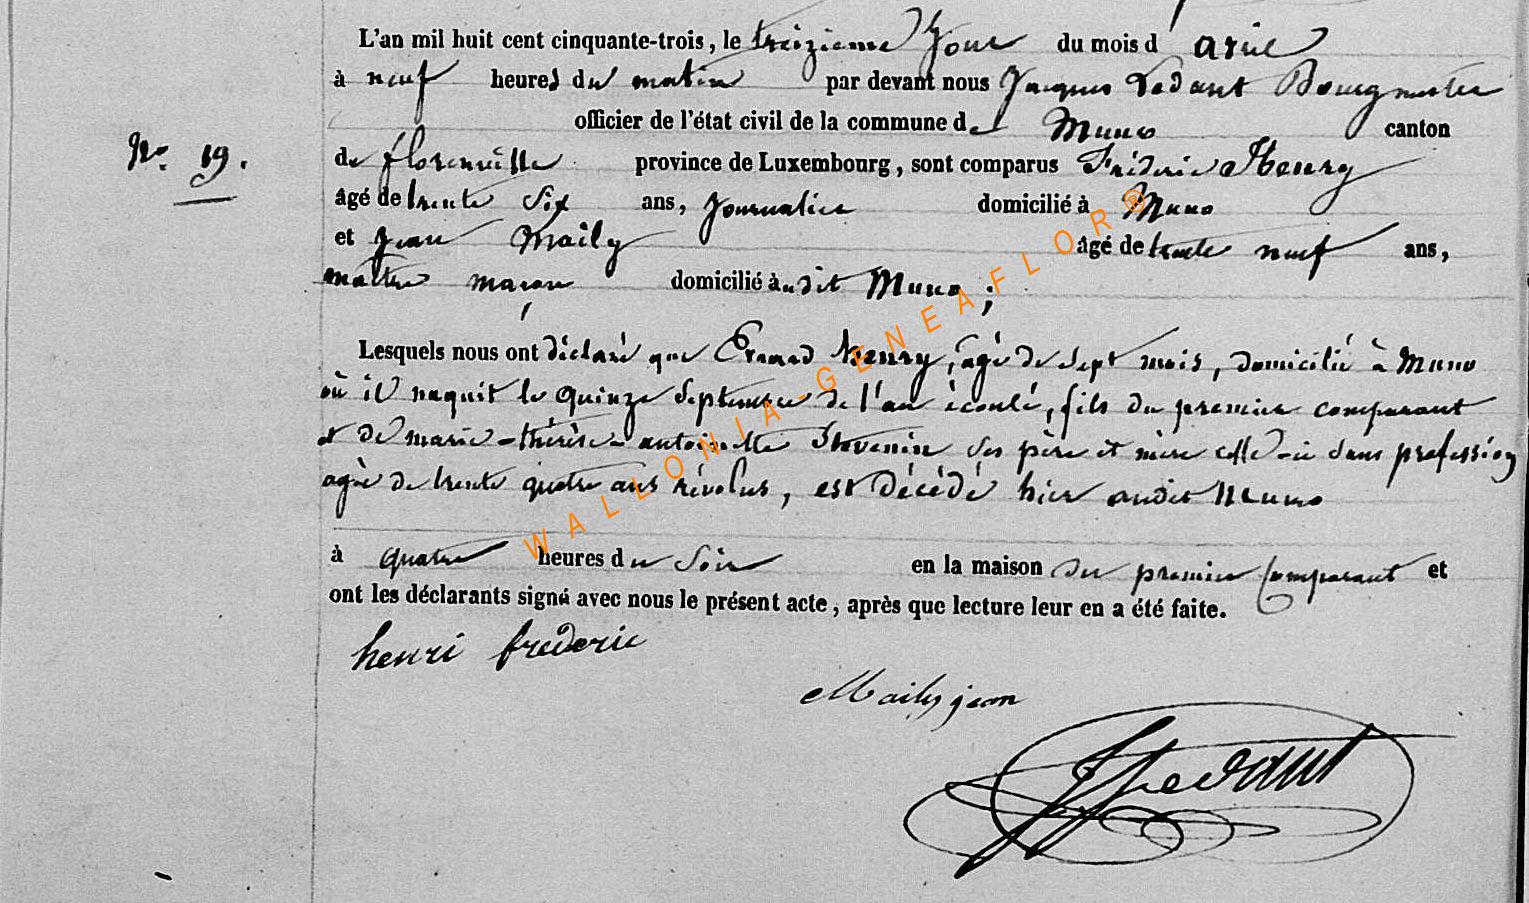 L'an mil huit cent cinquante-trois, le treizieme jour du mois d'avril
à neuf heures du matin par devant nous Jacques Ledant Bourgmestre
officier de l'état civil de la commune de Muno canton
N° 19.
de florenville province de Luxembourg, sont comparus Fréderic Henry
âgé de trente six ans, journalier domicilié à Muno
et Jean Maily âgé de trente neuf ans,
maître maçon domicilié audit Muno ;
Lesquels nous ont déclaré que Henry, âgé de sept mois, domicilié à Muno
où il naquit le quinze septembre de l'an écoulé, fils du premier comparant
et de marie-thérèse-antoinette Stevenin ses père et mère celle-ci sans profession
agée de trente quatre ans révolus, est décédé hier audit Muno
à quatre heures du soir en la maison du premier comparant et
ont les déclarants signé avec nous le présent acte, après que lecture leur en a été faite.
henri frederic
Maily jean
JLedant
WALLONIA-GENEAFLOR®